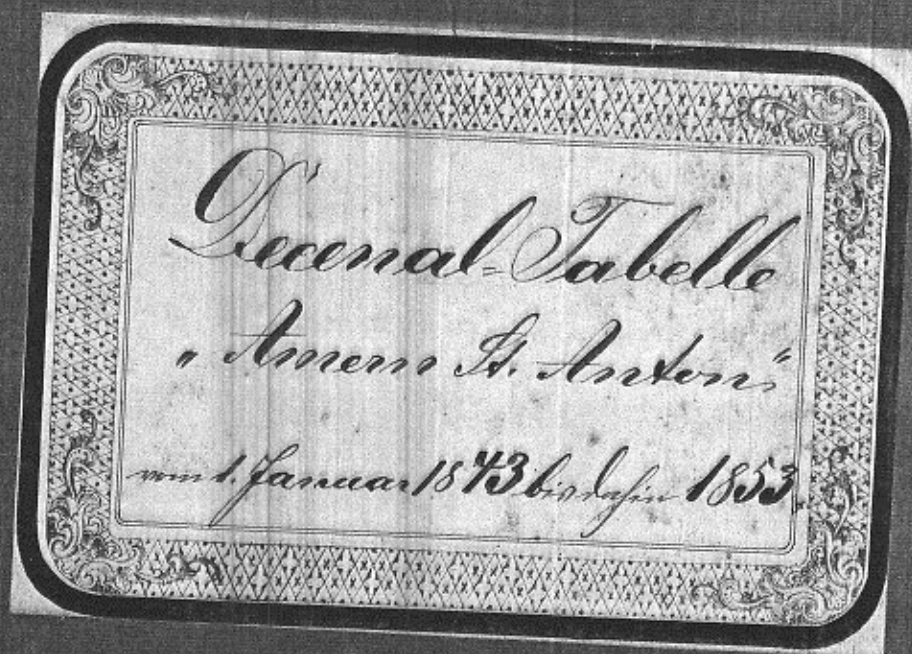 Decenal-Tabelle
„Amern St. Anton“
vom 1. Januar 1843 bis dahin 1853.